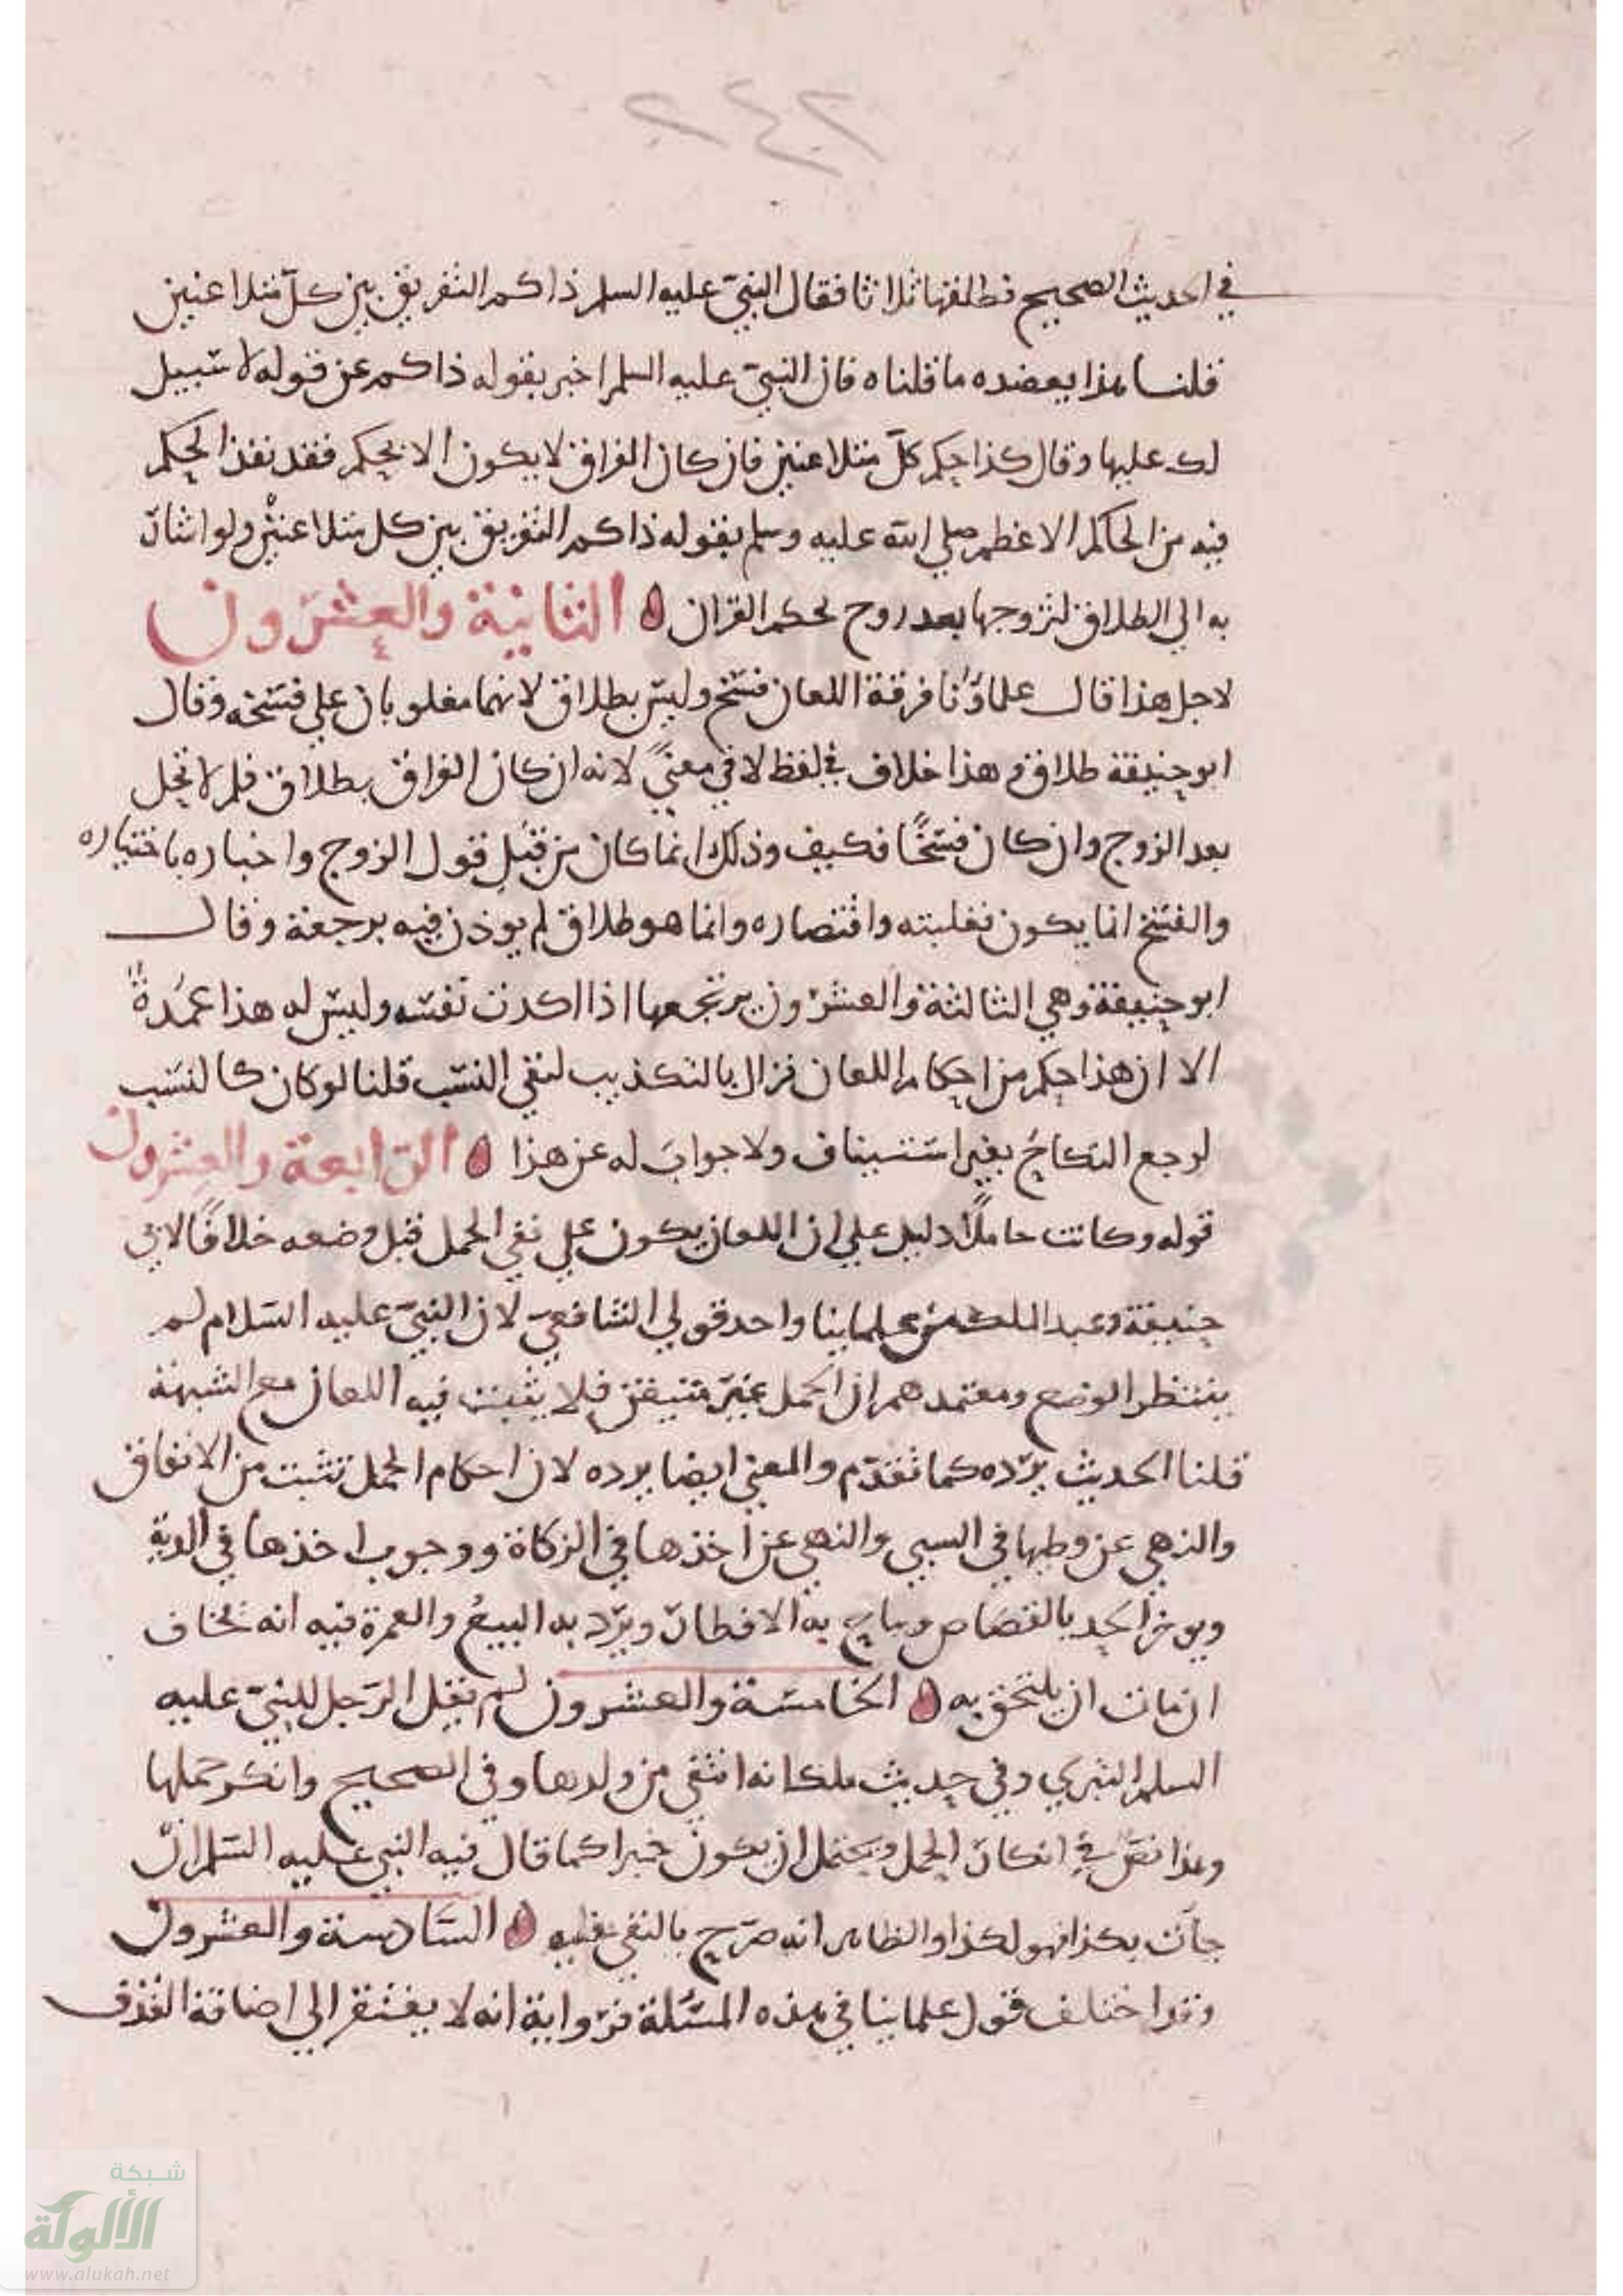 ٢٤٢
في الحديث الصحيح فطلقها ثلاثا فقال النبي عليه السلم ذاكم التفريق بين كل متلاعنين
قلنا هذا يعضده ما قلناه فان النبي عليه السلم اخبر بقوله ذاكم عن قوله لا سبيل
لك عليها وقال كذا حكم كل متلاعنين فان كان الفراق لا يكون الا بحكم فقد نفذ الحكم
فيه من الحاكم الاعظم صلي الله عليه وسلم بقوله ذاكم التفريق بين كل متلاعنين ولو اشار
به الي الطلاق لتزوجها بعد زوج بحكم القران الثانية والعشرون
لاجل هذا قال علماؤنا فرقة اللعان فسخ وليس بطلاق لانهما مغلوبان علي فسخه وقال
ابو حنيفة طلاق وهذا خلاف في لفظ لا في معنىً لانه ان كان الفراق بطلاق فلم لا تحل
بعد الزوج وان كان فسخًا فكيف وذلك انما كان من قبل قول الزوج واخباره باختياره
والفسخ انما يكون بغلبته واقتصاره وانما هو طلاق لم يوذن فيه برجعة وقال
ابو حنيفة وهي الثالثة والعشرون يرتجعها اذا اكذب نفسه وليس له هذا عمدة
الا ان هذا حكم من احكام اللعان فزال بالتكذيب لنفي النسب قلنا لو كان كالنسب
لرجع النكاح بغير استيناف ولا جواب له عن هذا الرابعة والعشرون
قوله وكانت حاملاً دليل علي ان اللعان يكون علي نفي الحمل قبل وضعه خلافًا لابي
حنيفة وعبد الملك من علماينا واحد قولي الشافعي لان النبي عليه السلام لم
ينتظر الوضع ومعتمدهم ان الحمل غير متيقن فلا يثبت فيه اللعان مع الشبهة
قلنا الحديث يرده كما تقدم والمعني ايضا يرده لان احكام الحمل تثبت من الانفاق
والنهي عن وطيها في السبي والنهي عن اخذها في الزكاة ووجوب اخذها في الدية
ويوخر الحد بالقصاص ويباح به الافطار ويرد به البيع والعمرة فيه انه يخاف
ان مات ان يلتحق به الخامسة والعشرون لم يقل الرجل للنبي عليه
السلم البتري وفي حديث ملك انه انتفي من ولدها وفي الصحيح وانكر حملها
وهذا نص في انكار الحمل ويحتمل ان يكون خبرا كما قال فيه النبي عليه السلم ان
جات بكذا فهو لكذا والظاهر انه صرح بالنفي السادسة والعشرون
اختلف قول علماينا في هذه المسئلة فرواية انه لا يفتقر الي اضافة القذف
شبكة
الألوكة
www.alukah.net